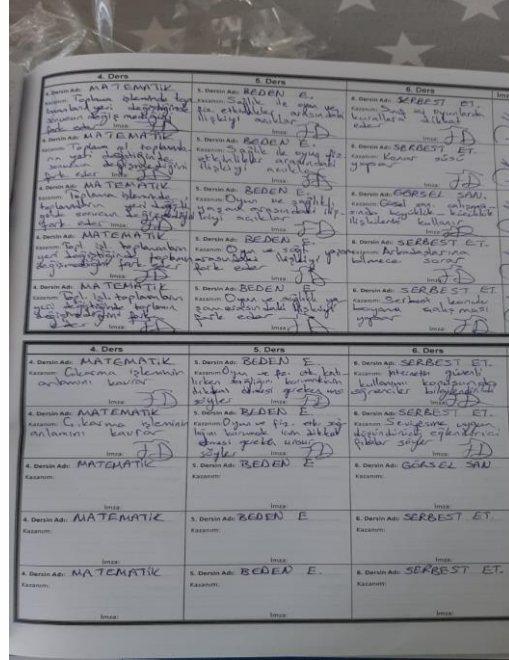 4. Ders 5. Ders 6. Ders
4. Dersin Adı: MATEMATİK
Kazanım: Toplama işleminde top
lananların yeri değiştiğinde
sonucun değişmediğini
fark eder
İmza:
5. Dersin Adı: BEDEN E.
Kazanım: Sağlık ile oyun ve
fiz. etkinlikler arasındaki
ilişkiyi açıklar
İmza:
6. Dersin Adı: SERBEST ET.
Kazanım: Sınıf içi oyunlarda
kurallara dikkat
eder
İmza:
4. Dersin Adı: MATEMATİK
Kazanım: Toplama işl. toplanan
rın yeri değiştiğinde
sonucun değişmediğini
fark eder
İmza:
5. Dersin Adı: BEDEN E.
Kazanım: Sağlık ile oyun fiz.
etkinlikler arasındaki
ilişkiyi açıklar
İmza:
6. Dersin Adı: SERBEST ET.
Kazanım: Kenar süsü
yapar
İmza:
4. Dersin Adı: MATEMATİK
Kazanım: Toplama işleminde
toplananların yeri değişti
ğinde sonucun değişmediğini
fark eder
İmza:
5. Dersin Adı: BEDEN E.
Kazanım: Oyun ve sağlıklı
yaşam arasındaki iliş
kiyi açıklar
İmza:
6. Dersin Adı: GÖRSEL SAN.
Kazanım: Görsel san. çalışma
sında büyüklük küçüklük
ilişkilerini kullanır
İmza:
4. Dersin Adı: MATEMATİK
Kazanım: Topl. işl. toplananların
yeri değiştiğinde toplamın
değişmediğini fark eder
İmza:
5. Dersin Adı: BEDEN E.
Kazanım: Oyun ve sağl. yaşam
arasındaki ilişkiyi
fark eder
İmza:
6. Dersin Adı: SERBEST ET.
Kazanım: Arkadaşlarına
bilmece sorar
İmza:
4. Dersin Adı: MATEMATİK
Kazanım: Topl. işl. toplananların
yeri değiştiğinde toplamın
değişmediğini fark
eder
İmza:
5. Dersin Adı: BEDEN E.
Kazanım: Oyun ve sağlıklı ya
şam arasındaki ilişkiyi
fark eder
İmza:
6. Dersin Adı: SERBEST ET.
Kazanım: Serbest resimler
boyama çalışması
yapar
İmza:
4. Ders 5. Ders 6. Ders
4. Dersin Adı: MATEMATİK
Kazanım: Çıkarma işleminin
anlamını kavrar
İmza:
5. Dersin Adı: BEDEN E
Kazanım: Oyun ve fiz. etk. katı
lırken sağlığını korumak için
dikkat etmesi gereken uns.
söyler
İmza:
6. Dersin Adı: SERBEST ET.
Kazanım: İnternetin güvenli
kullanımı konusunda
öğrenciler bilgilendirildi
İmza:
4. Dersin Adı: MATEMATİK
Kazanım: Ç.karma işleminin
anlamını kavrar
İmza:
5. Dersin Adı: BEDEN E.
Kazanım: Oyun ve fiz. etk. sağ
lığını korumak için dikkat
etmesi gereken unsur
söyler
İmza:
6. Dersin Adı: SERBEST ET.
Kazanım: Seviyesine uygun
düşündürücü eğlendirici
fıkralar söyler
İmza:
4. Dersin Adı: MATEMATİK
Kazanım:
İmza:
5. Dersin Adı: BEDEN E
Kazanım:
İmza:
6. Dersin Adı: GÖRSEL SAN
Kazanım:
İmza:
4. Dersin Adı: MATEMATİK
Kazanım:
İmza:
5. Dersin Adı: BEDEN E
Kazanım:
İmza:
6. Dersin Adı: SERBEST ET.
Kazanım:
İmza:
4. Dersin Adı: MATEMATİK
Kazanım:
İmza:
5. Dersin Adı: BEDEN E.
Kazanım:
İmza:
6. Dersin Adı: SERBEST ET.
Kazanım:
İmza: